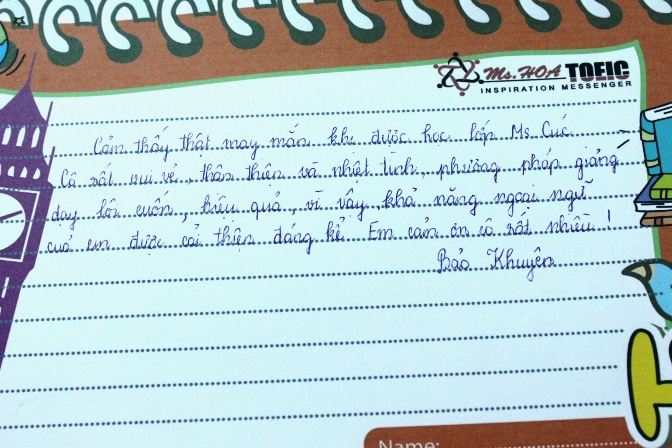 Ms. HOA TOEIC
INSPIRATION MESSENGER
Cảm thấy thật may mắn khi được học lớp Ms. Cúc.
Cô rất vui vẻ, thân thiện và nhiệt tình, phương pháp giảng
dạy lôi cuốn, hiệu quả, vì vậy khả năng ngoại ngữ
của em được cải thiện đáng kể. Em cảm ơn cô rất nhiều !
Bảo Khuyên
Name: